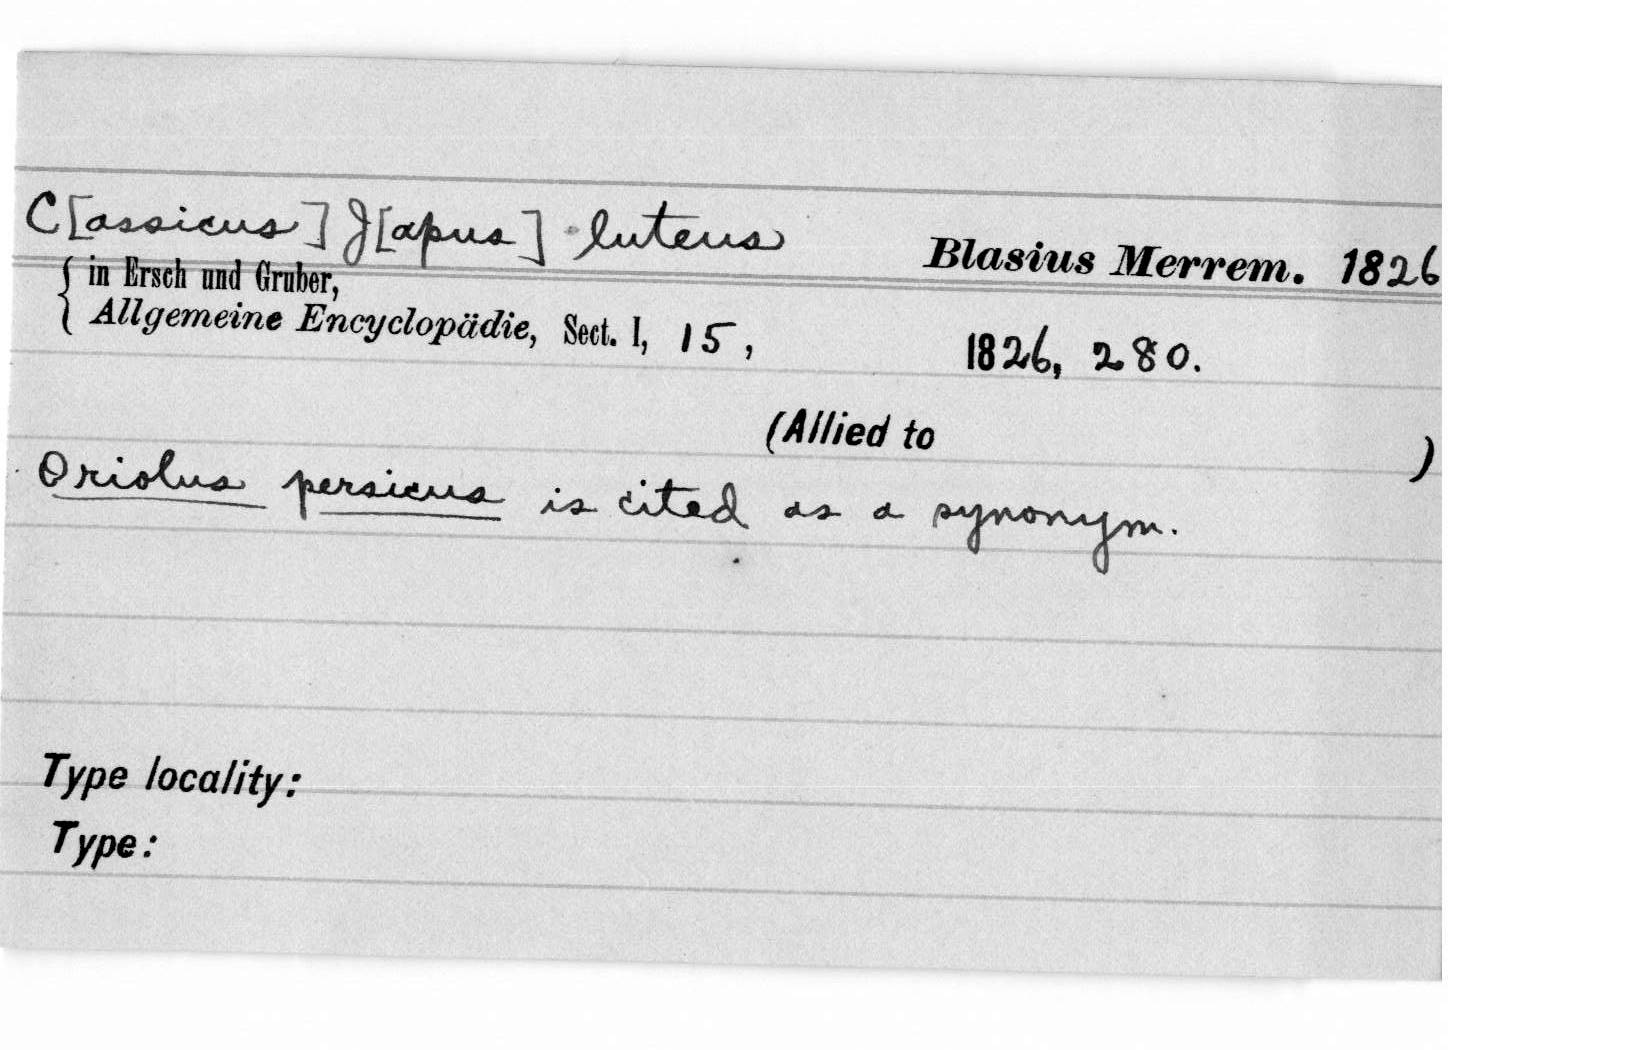 C[assicus] J[apus] luteus Blasius Merrem. 1826
in Ersch und Gruber,
Allgemeine Encyclopädie, Sect. I, 15, 1826, 280.
(Allied to )
Oriolus persicus is cited as a synonym.
Type locality:
Type: